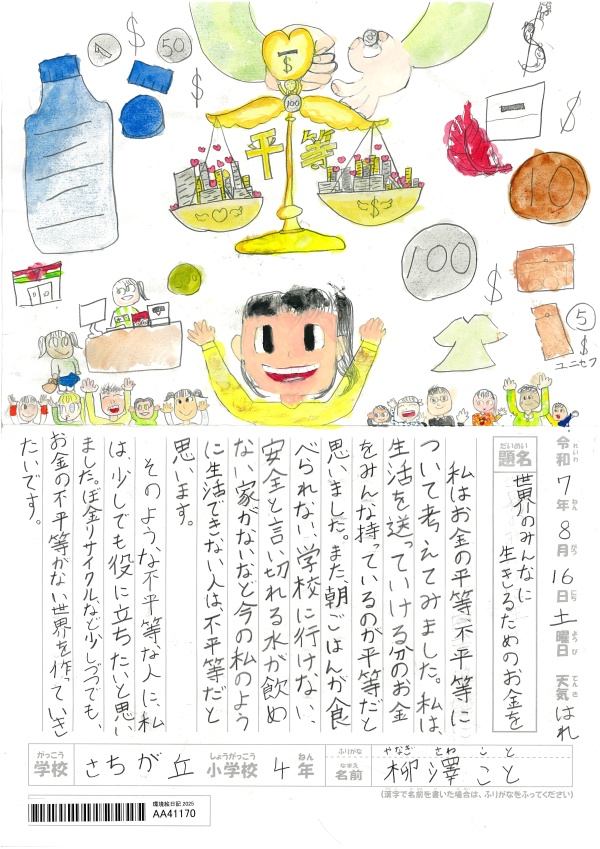 $
50
$
$
100
平等
$
$
10
100
$
5
$
ユニセフ
令和7年8月16日土曜日 天気はれ
れいわ ねん がつ にち ようび てんき
だいめい
題名
世界のみんなに
生きるためのお金を
私はお金の平等、不平等に
ついて考えてみました。私は、
生活を送っていける分のお金
をみんな持っているのが平等だと
思いました。また、朝ごはんが食
べられない、学校に行けない、
安全と言い切れる水が飲め
ない、家がないなど今の私のよう
に生活できない人は、不平等だと
思います。
そのような不平等な人に、私
は、少しでも役に立ちたいと思い
ました。ぼ金、リサイクルなど少しづつでも、
お金の不平等がない世界を作っていき
たいです。
がっこう しょうがっこう ねん ふりがな やなぎ さわ こと
学校 さちが丘 小学校 4年 なまえ 名前 柳澤 こと
(漢字で名前を書いた場合は、ふりがなをふってください)
環境絵日記 2025
AA41170